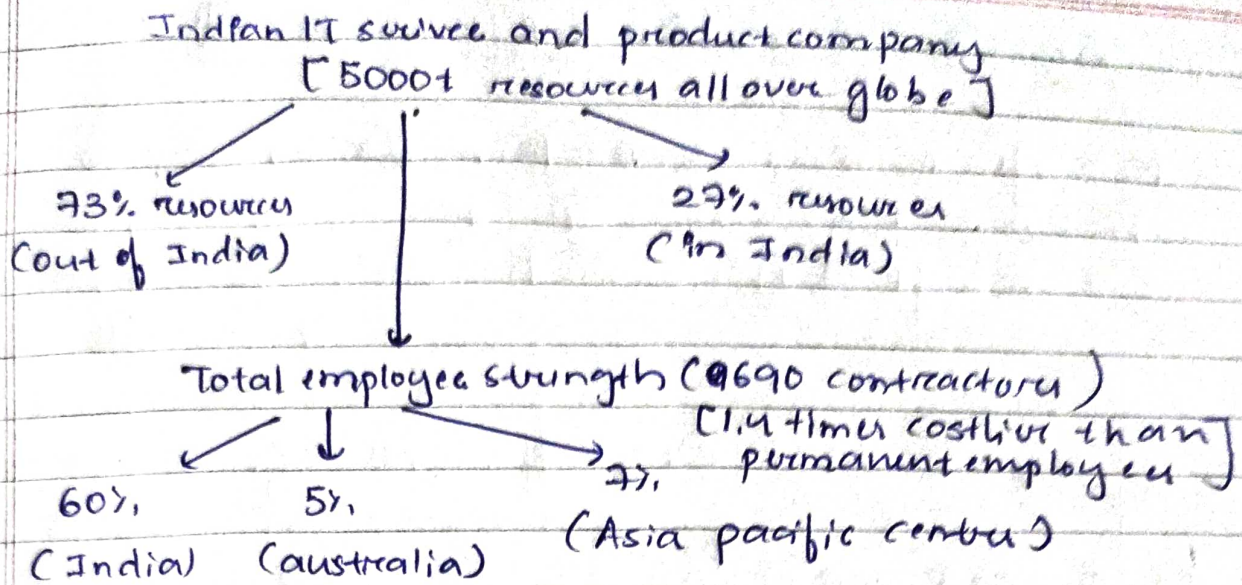 Indian IT service and product company
[5000+ resources all over globe]
73% resources
(out of India)
27% resources
(in India)
Total employee strength (9690 contractors)
[1.4 times costlier than
permanent employees]
60% 5% 7%
(India) (australia) (Asia pacific centre)